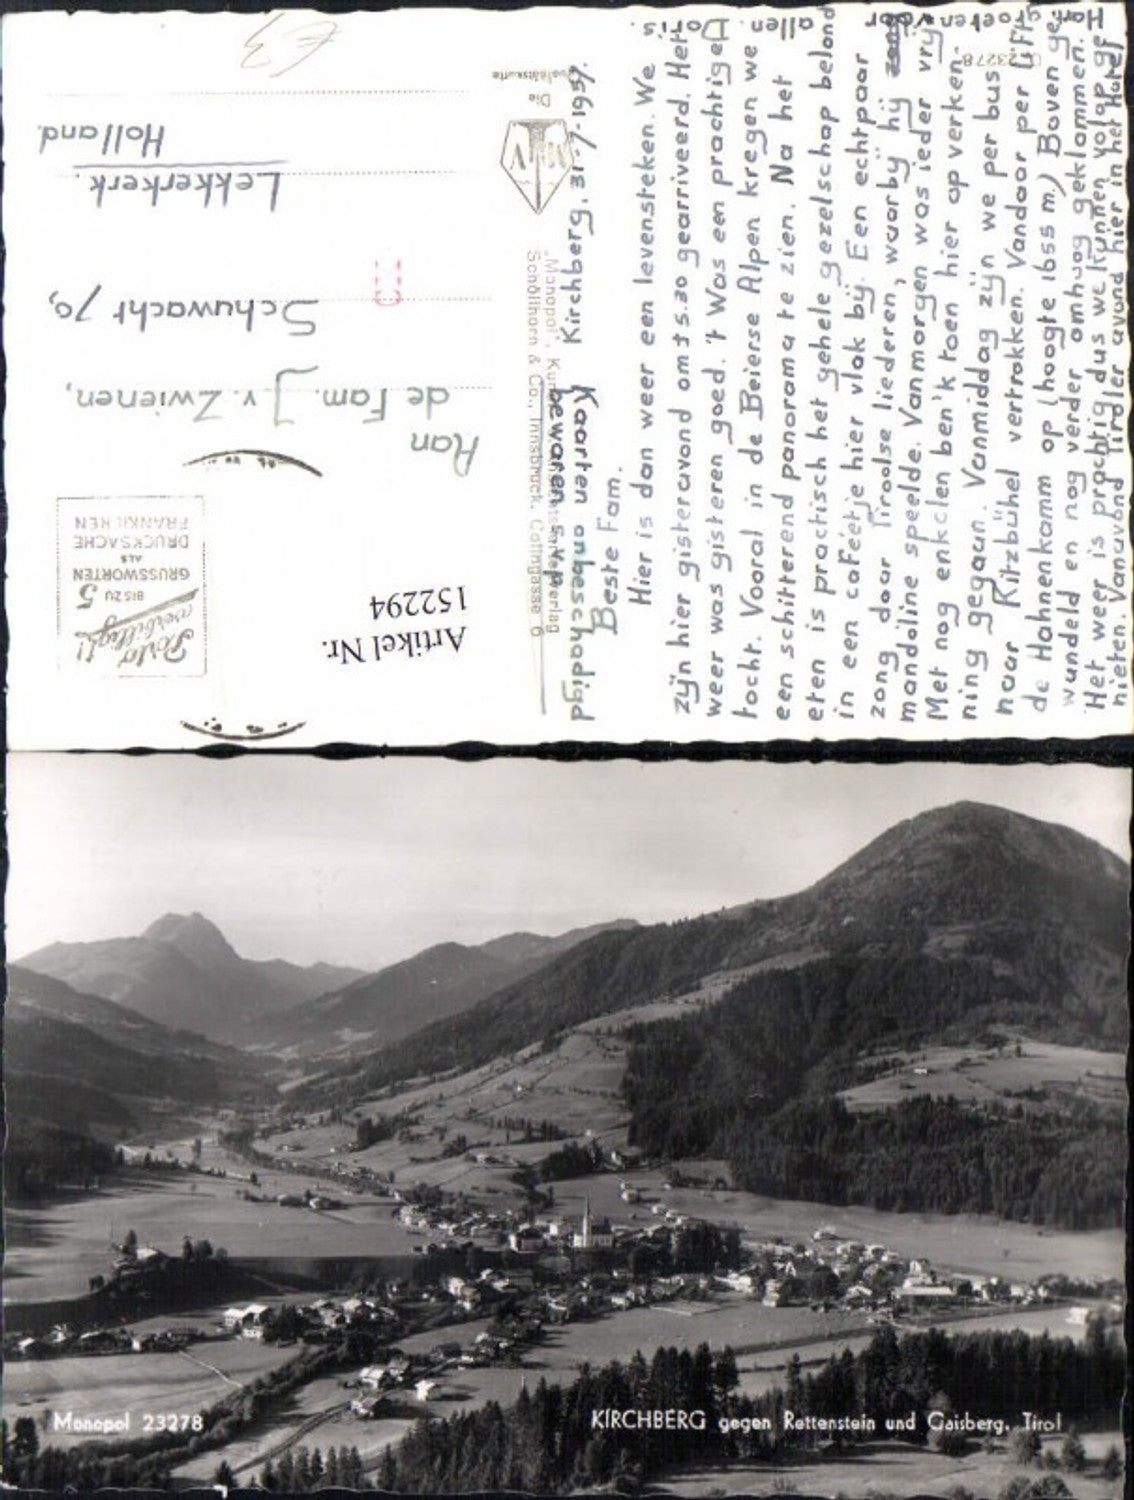 Kirchberg, 31-7-1959.
Kaarten onbeschadigd
bewaren s.v.p.
Beste Fam.
Hier is dan weer een levensteken. We
zijn hier gisteravond om ± 5.30 gearriveerd. Het
weer was gisteren goed. 't Was een prachtige
tocht. Vooral in de Beierse Alpen kregen we
een schitterend panorama te zien. Na het
eten is practisch het gehele gezelschap beland
in een caféetje hier vlak bij. Een echtpaar
zong daar Tiroolse liederen, waarbij hij
mandoline speelde. Vanmorgen was ieder vrij.
Met nog enkelen ben 'k toen hier op verken-
ning gegaan. Vanmiddag zijn we per bus
naar Kitzbühel vertrokken. Vandaar per lift
de Hahnenkamm op (hoogte 1655 m.) Boven ge-
wandeld en nog verder omhoog geklommen.
Het weer is prachtig dus we kunnen volop ge-
nieten. Vanavond Tiroler avond hier in het Hotel
Hart. groeten voor allen. Doris.
23278
Die
Qualitätskarte
"Monopol", Kunstverlag
Schöllhorn & Co., Innsbruck, Colingasse 6
Artikel Nr.
152294
Porto
verbilligt!
BIS ZU 5
GRUSSWORTEN
ALS
DRUCKSACHE
FRANKIEREN
Aan
de Fam. J. v. Zwienen,
Schuwacht 70,
Lekkerkerk.
Holland.
€3
Monopol 23278
KIRCHBERG gegen Rettenstein und Gaisberg, Tirol